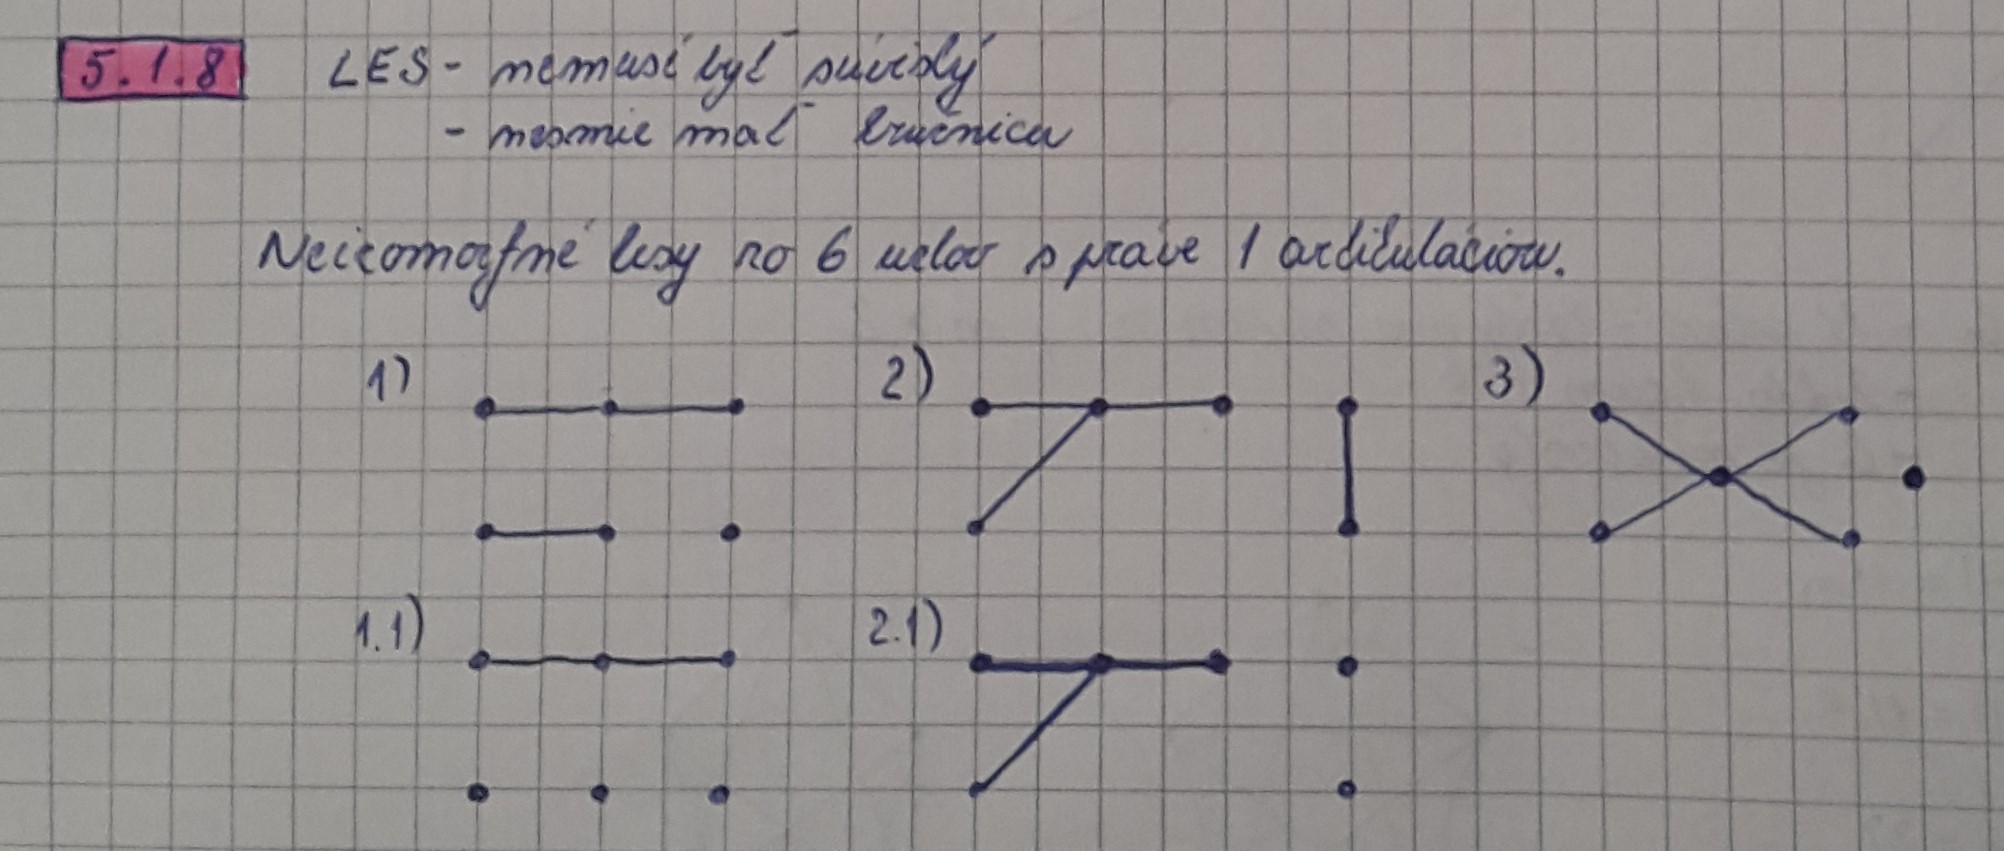 5.1.8 LES - nemusí byť súvislý
- nesmie mať kružnicu
Neizomorfné lesy so 6 uzlov s práve 1 artikuláciou.
1) 2) 3)
1.1) 2.1)